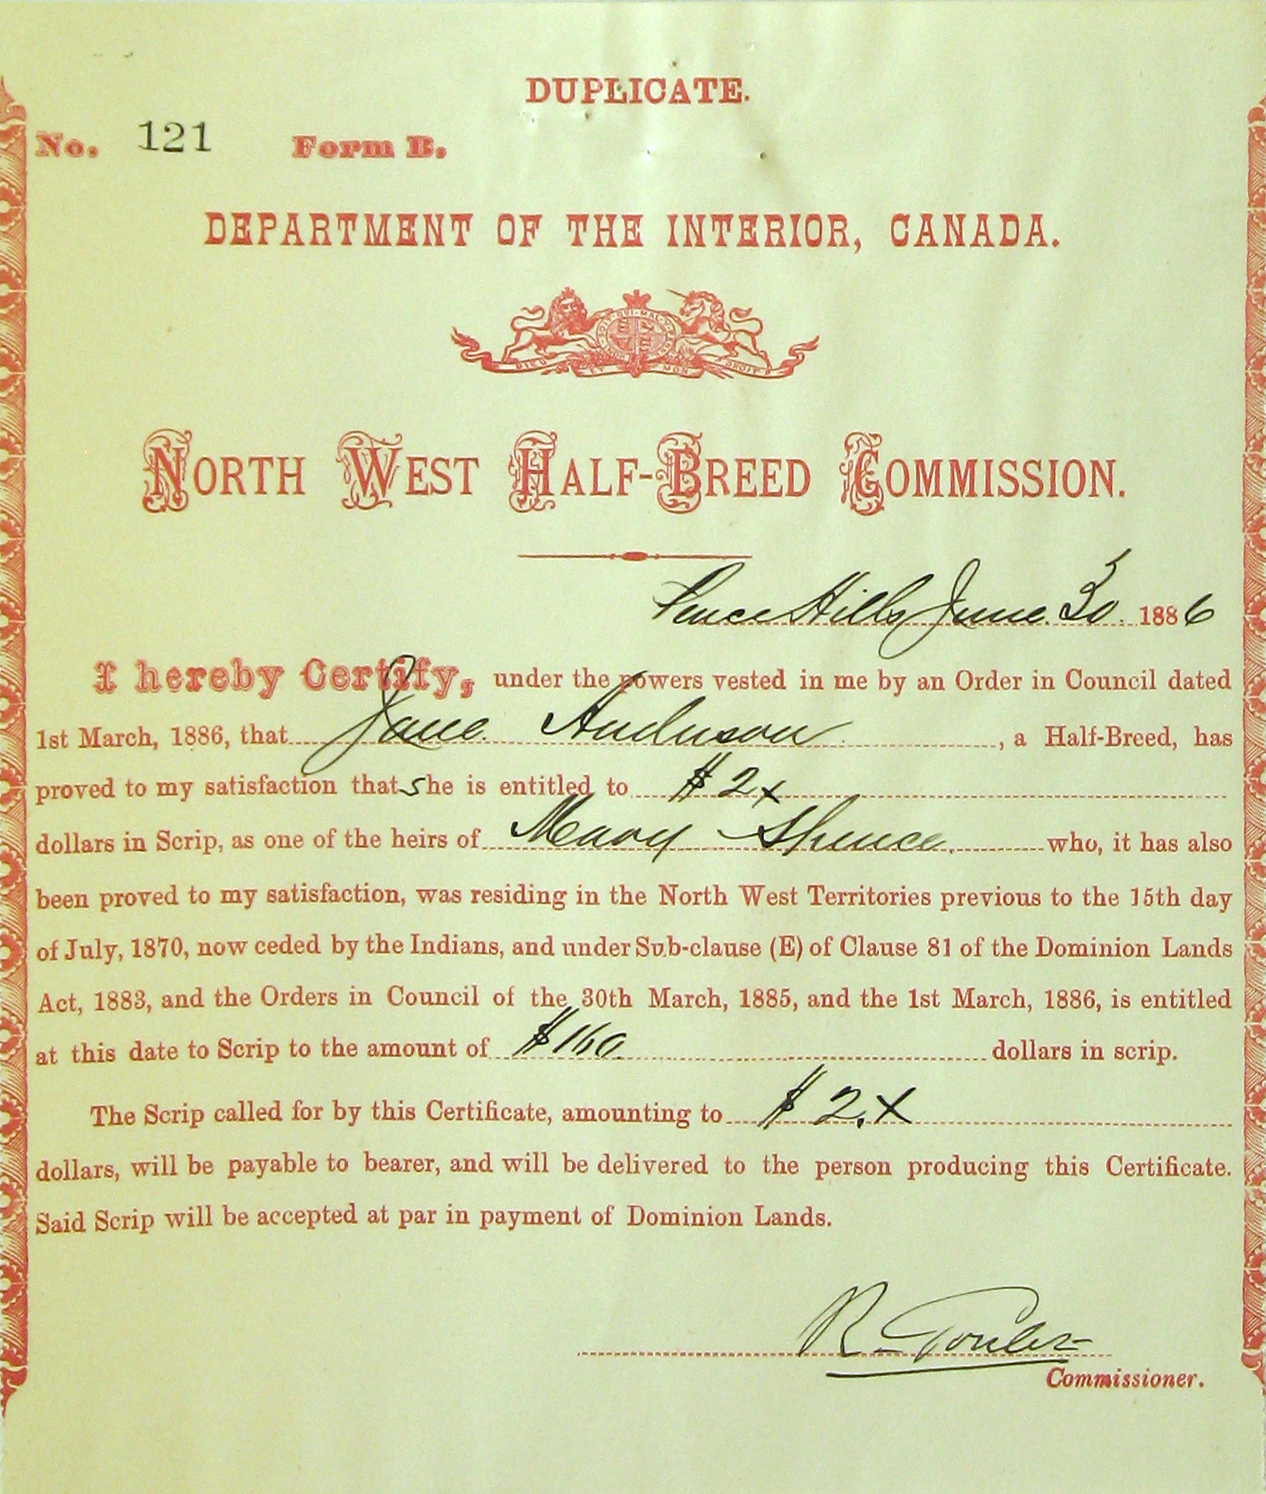 DUPLICATE.
No. 121 Form B.
DEPARTMENT OF THE INTERIOR, CANADA.
DIEU ET MON DROIT
NORTH WEST HALF-BREED COMMISSION.
Hills June 30 1886
I hereby Certify, under the powers vested in me by an Order in Council dated
1st March, 1886, that Jane Anderson, a Half-Breed, has
proved to my satisfaction that she is entitled to $ 2x
dollars in Scrip, as one of the heirs of Mary Spence. who, it has also
been proved to my satisfaction, was residing in the North West Territories previous to the 15th day
of July, 1870, now ceded by the Indians, and under Sub-clause (E) of Clause 81 of the Dominion Lands
Act, 1883, and the Orders in Council of the 30th March, 1885, and the 1st March, 1886, is entitled
at this date to Scrip to the amount of $160 dollars in scrip.
The Scrip called for by this Certificate, amounting to $ 2.x
dollars, will be payable to bearer, and will be delivered to the person producing this Certificate.
Said Scrip will be accepted at par in payment of Dominion Lands.
R.
Commissioner.